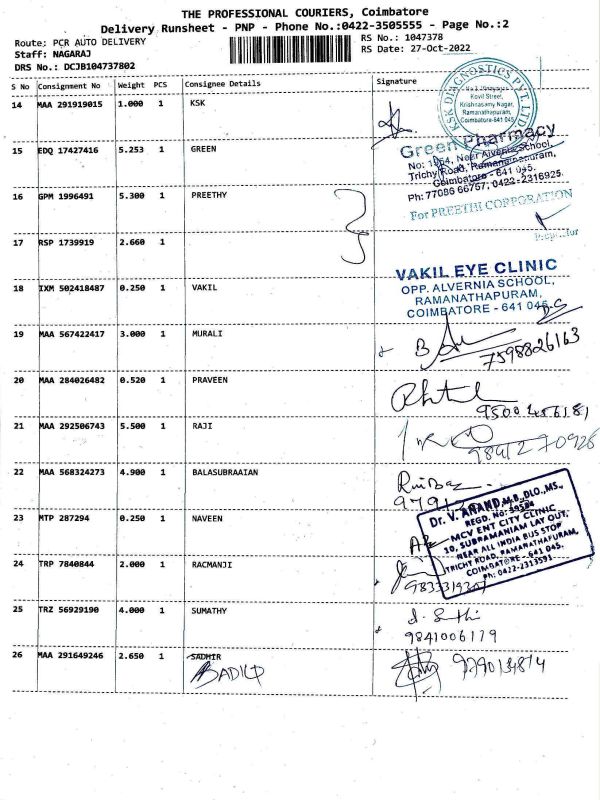 THE PROFESSIONAL COURIERS, Coimbatore
Delivery Runsheet - PNP - Phone No.:0422-3505555 - Page No.:2
Route: PCR AUTO DELIVERY
Staff: NAGARAJ
DRS No.: DCJB104737802
RS No.: 1047378
RS Date: 27-Oct-2022
S No Consignment No Weight PCS Consignee Details Signature
14 MAA 291919015 1.000 1 KSK
KSK DIAGNOSTICS PVT. LTD.
Kovil Street,
Krishnasamy Nagar,
Ramanathapuram,
Coimbatore-641 045
15 EDQ 17427416 5.253 1 GREEN
Green Pharmacy
No: 1054, Near Alvernia School,
Trichy Road, Ramanathapuram,
Coimbatore - 641 045.
Ph: 77086 66767, 0422-2316925
16 GPM 1996491 5.300 1 PREETHY
For PREETHI CORPORATION
17 RSP 1739919 2.660 1
18 IXM 502418487 0.250 1 VAKIL
VAKIL EYE CLINIC
OPP. ALVERNIA SCHOOL,
RAMANATHAPURAM,
COIMBATORE - 641 045.
19 MAA 567422417 3.000 1 MURALI
7598826163
20 MAA 284026482 0.520 1 PRAVEEN
9500456181
21 MAA 292506743 5.500 1 RAJI
22 MAA 568324273 4.900 1 BALASUBRAAIAN
23 MTP 287294 0.250 1 NAVEEN
Dr. V. ANAND M.B.,DLO.,MS.,
REGD. No: 39584
MCV ENT CITY CLINIC
10, SUBRAMANIAM LAY OUT,
NEAR ALL INDIA BUS STOP
TRICHY ROAD, RAMANATHAPURAM,
COIMBATORE - 641 045.
Ph: 0422-2313591
24 TRP 7840844 2.000 1 RACMANJI
25 TRZ 56929190 4.000 1 SUMATHY
9841006179
26 MAA 291649246 2.650 1 SADHIR